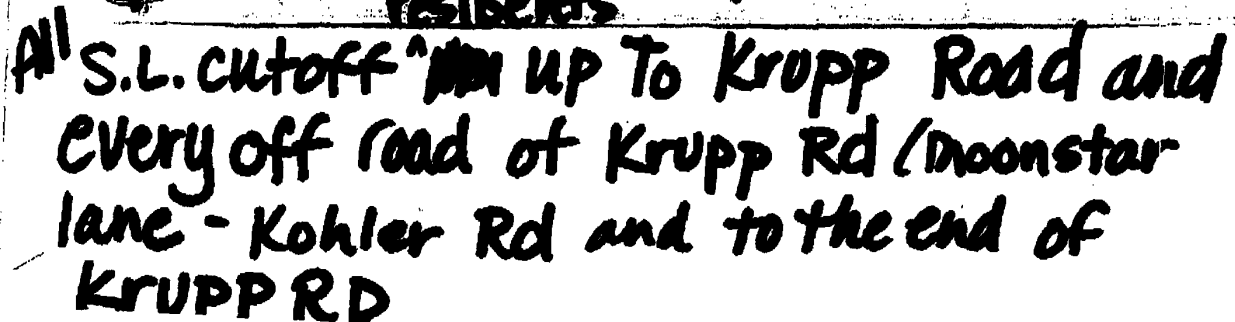 residents
All S.L. cutoff ^ up To Krupp Road and
every off road of Krupp Rd (Moonstar
lane - Kohler Rd and to the end of
Krupp RD